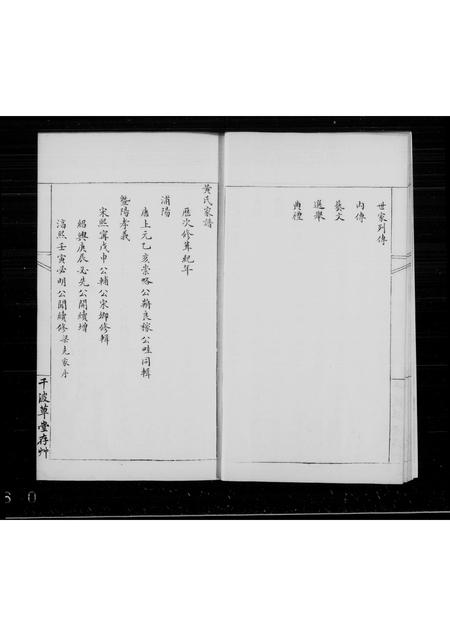 世家列傳
內傳
藝文
選舉
典禮
黃氏家譜
歷次修葺紀年
浦陽
唐上元乙亥崇略公薢良稼公畦同輯
暨陽孝義
宋熙寧戊申公輔公宋卿修輯
紹興庚辰必先公開續增
淳熙壬寅必明公開續修梁克家序
千波草堂存艸
80